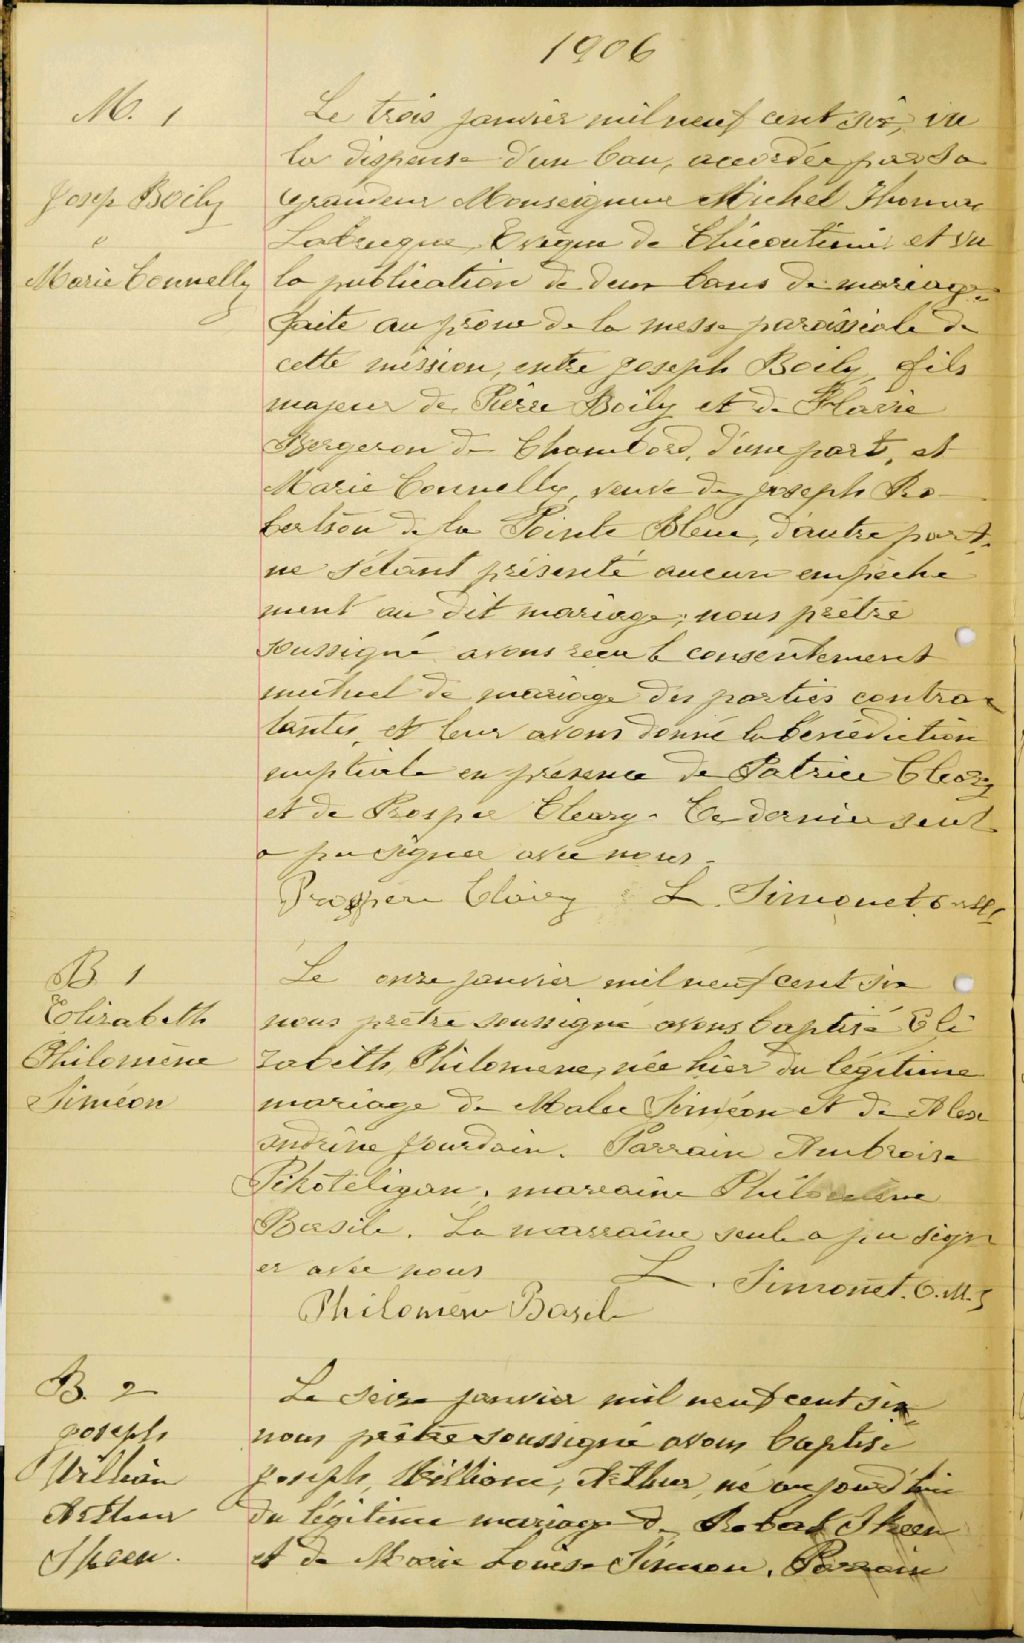 1906
M. 1
Josep Boily
&
Marie Connelly
Le trois janvier mil neuf cent six, vu
la dispense d'un ban, accordée par Sa
Grandeur Monseigneur Michel Thomas
Labrecque, Evêque de Chicoutimi et vu
la publication de deux bans de mariage
faite au prône de la messe paroissiale de
cette mission, entre Joseph Boily, fils
majeur de Pierre Boily et de Flavie
Bergeron de Chambord, d'une part, et
Marie Connelly, veuve de Joseph Ro-
bertson de la Pointe Bleue, d'autre part,
ne s'étant présenté aucun empêche
ment au dit mariage; nous prêtre
soussigné avons reçu le consentement
mutuel de mariage des parties contrac
tantes, et leur avons donné la bénédiction
nuptiale en présence de Patrice Cleary
et de Prosper Cleary. Ce dernier seul
a pu signer avec nous.
Prosper Clairy L. Simonet o.m.i
B 1
Elizabeth
Philomène
Siméon
Le onze janvier mil neuf cent six
nous prêtre soussigné avons baptisé Eli
zabeth, Philomene, née hier du légitime
mariage de Malec Siméon et de Alex
andrine Jourdain. Parrain Ambroise
Pikoteligan, marraine Philomène
Basile. La marraine seule a pu sign
er avec nous
L. Simonet. O.M.I
Philomène Basile
B. 2
Joseph
William
Arthur
Skeen.
Le seize janvier mil neuf cent six
nous prêtre soussigné avons baptisé
Joseph, William, Arthur, né aujourd'hui
du légitime mariage de Robert Skeen
et de Marie Louise Siméon. Parrain